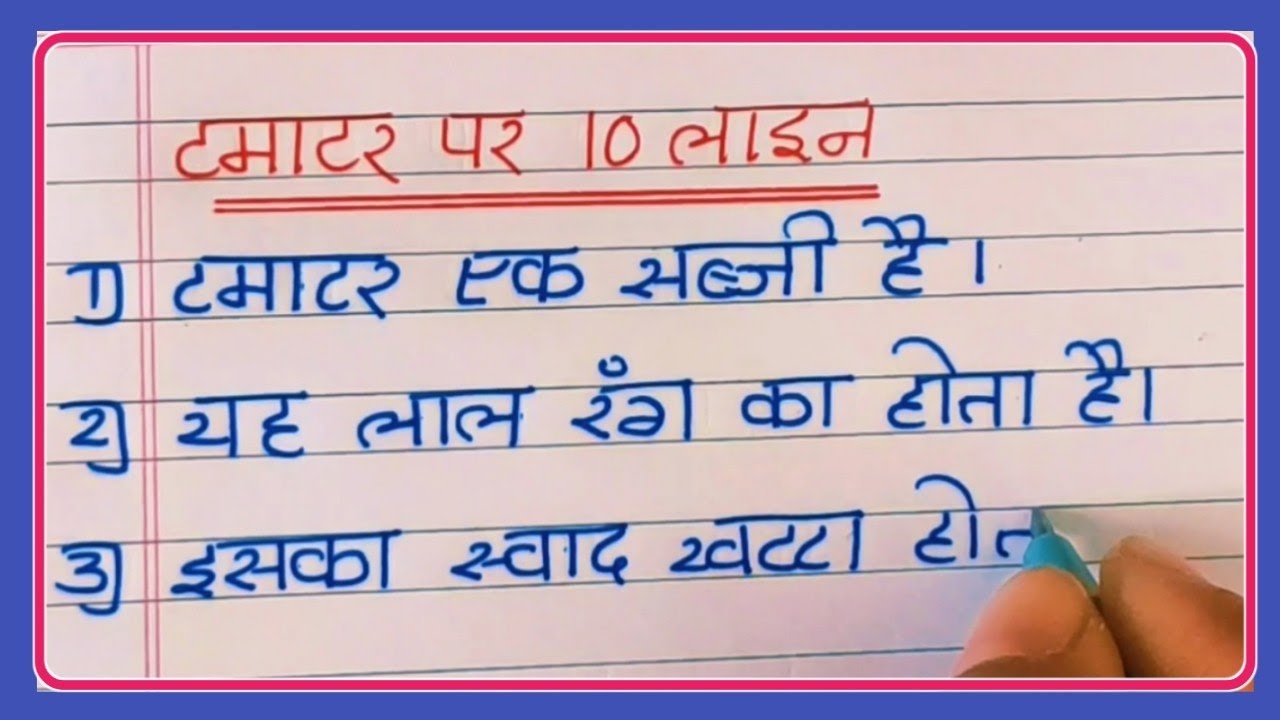 टमाटर पर 10 लाइन
1) टमाटर एक सब्जी है।
2) यह लाल रँग का होता है।
3) इसका स्वाद खट्टा होत